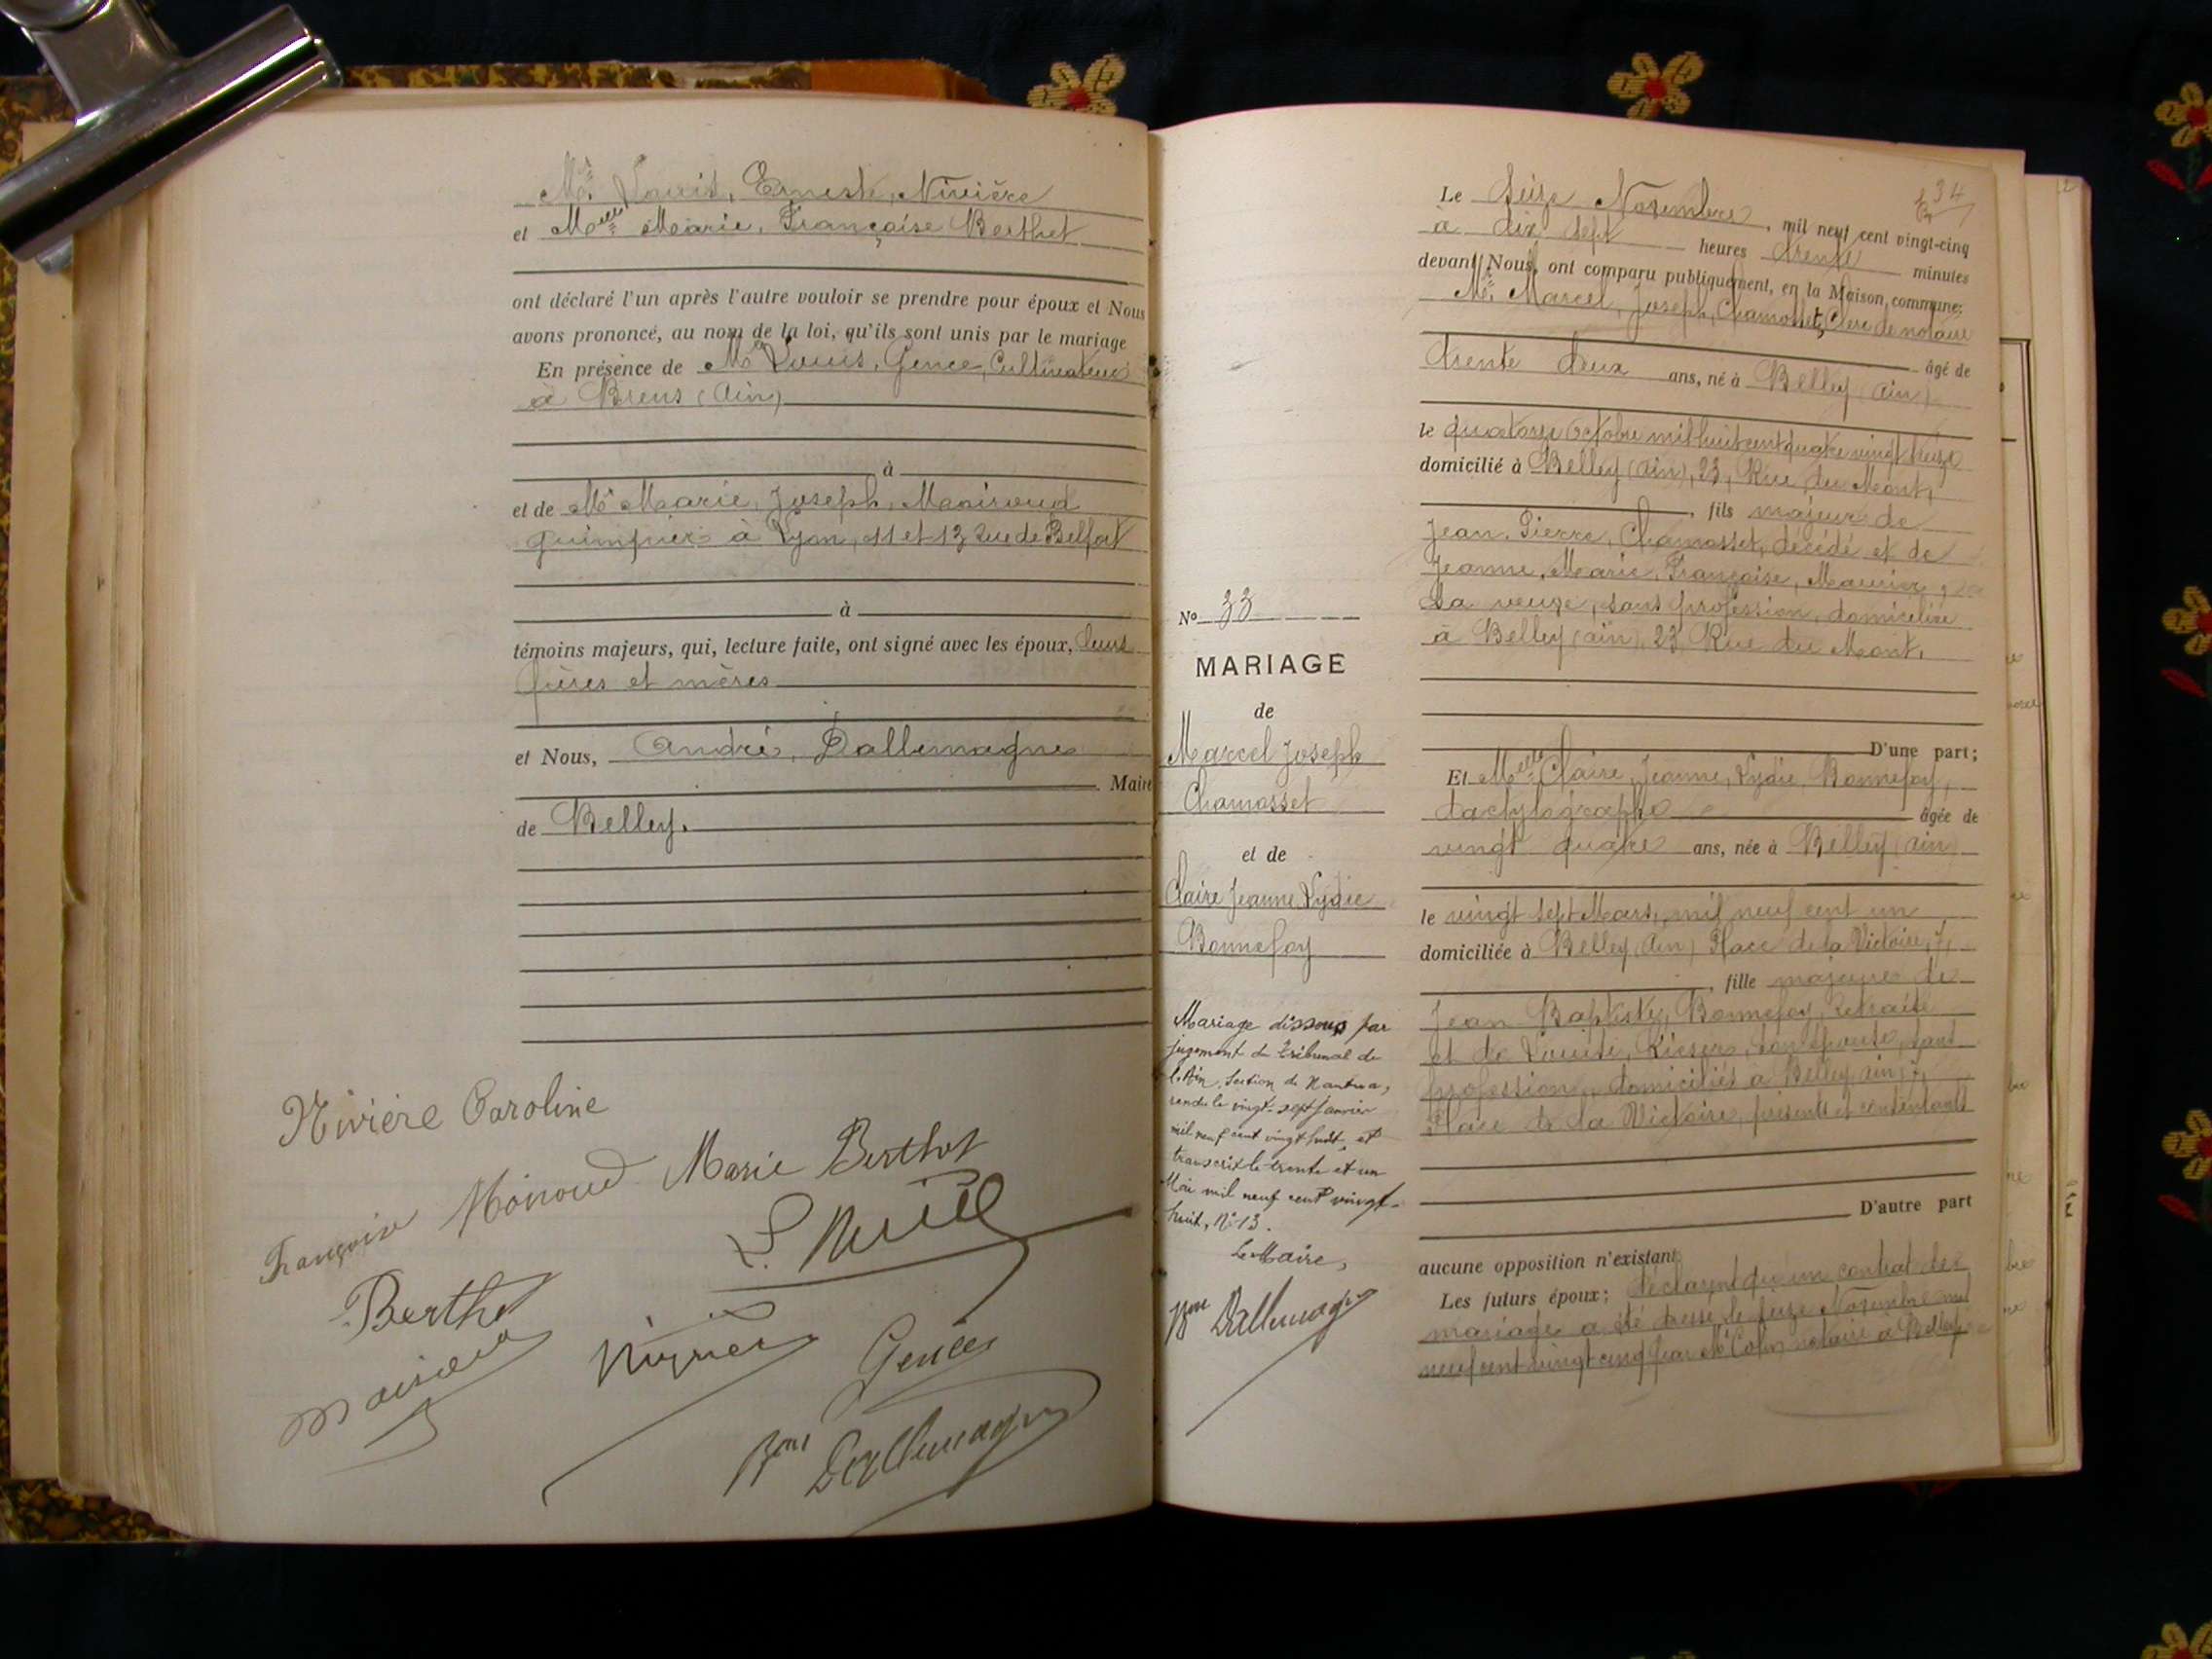 Mr. Louis, Ernest, Nivière
et Melle Marie, Françoise Berthet
ont déclaré l'un après l'autre vouloir se prendre pour époux et Nous
avons prononcé, au nom de la loi, qu'ils sont unis par le mariage
En présence de Mr Louis, Gence, Cultivateur
à Brens (Ain)
à
et de Mr Marie, Joseph, Moiroud
guimpier à Lyon, 11 et 13 rue de Belfort
à
témoins majeurs, qui, lecture faite, ont signé avec les époux, leurs
pères et mères
et Nous, André, Dallemagne
Maire
de Belley.
Nivière Caroline
Françoise Moiroud Marie Berthet
Berthet
L. Nivière
Moiroud
Nivière
Gence
Bon Dallemagne
34
Le Seize Novembre, mil neuf cent vingt-cinq
à dix sept heures trente minutes
devant Nous, ont comparu publiquement, en la Maison commune:
Mr. Marcel, Joseph, Chamosset, Clerc de notaire
âgé de
trente deux ans, né à Belley (Ain)
le quatorze Octobre mil huit cent quatre vingt treize
domicilié à Belley (Ain), 23, Rue du Mont,
, fils majeur de
Jean, Pierre, Chamosset, décédé et de
Jeanne, Marie, Françoise,
sa veuve, sans profession, domiciliée
à Belley (Ain), 23, Rue du Mont.
D'une part;
Et Melle Claire, Jeanne, Lydie Bonnefoy,
dactylographe âgée de
vingt quatre ans, née à Belley (Ain)
le vingt sept Mars, mil neuf cent un
domiciliée à Belley (Ain) Place de la Victoire, 7,
, fille majeure de
Jean Baptiste, Bonnefoy, retraité
et de Louise, Kieser, son épouse, sans
profession, domiciliés à Belley (Ain), 7,
Place de la Victoire, présents et consentants
D'autre part
aucune opposition n'existant
Les futurs époux; déclarent qu'un contrat de
mariage a été dressé le seize Novembre mil
neuf cent vingt cinq par Me Colin notaire à Belley
No 33
MARIAGE
de
Marcel Joseph
Chamosset
et de
Claire Jeanne Lydie
Bonnefoy
Mariage dissous par
jugement du tribunal de
l'Ain, Section de Nantua,
rendu le vingt-sept Janvier
mil neuf cent vingt huit, et
transcrit le trente et un
Mai mil neuf cent vingt-
huit, N° 13.
Le Maire,
Bon Dallemagne